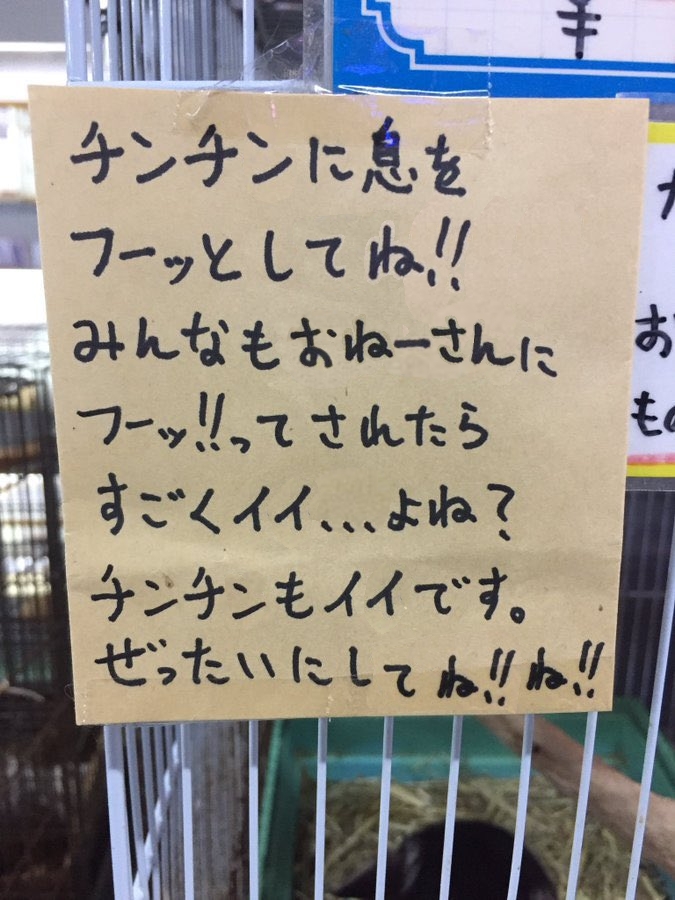 チンチンに息を
フーッとしてね!!
みんなもおねーさんに
フーッ!!ってされたら
すごくイイ...よね?
チンチンもイイです。
ぜったいにしてね!!ね!!
¥
お
もの